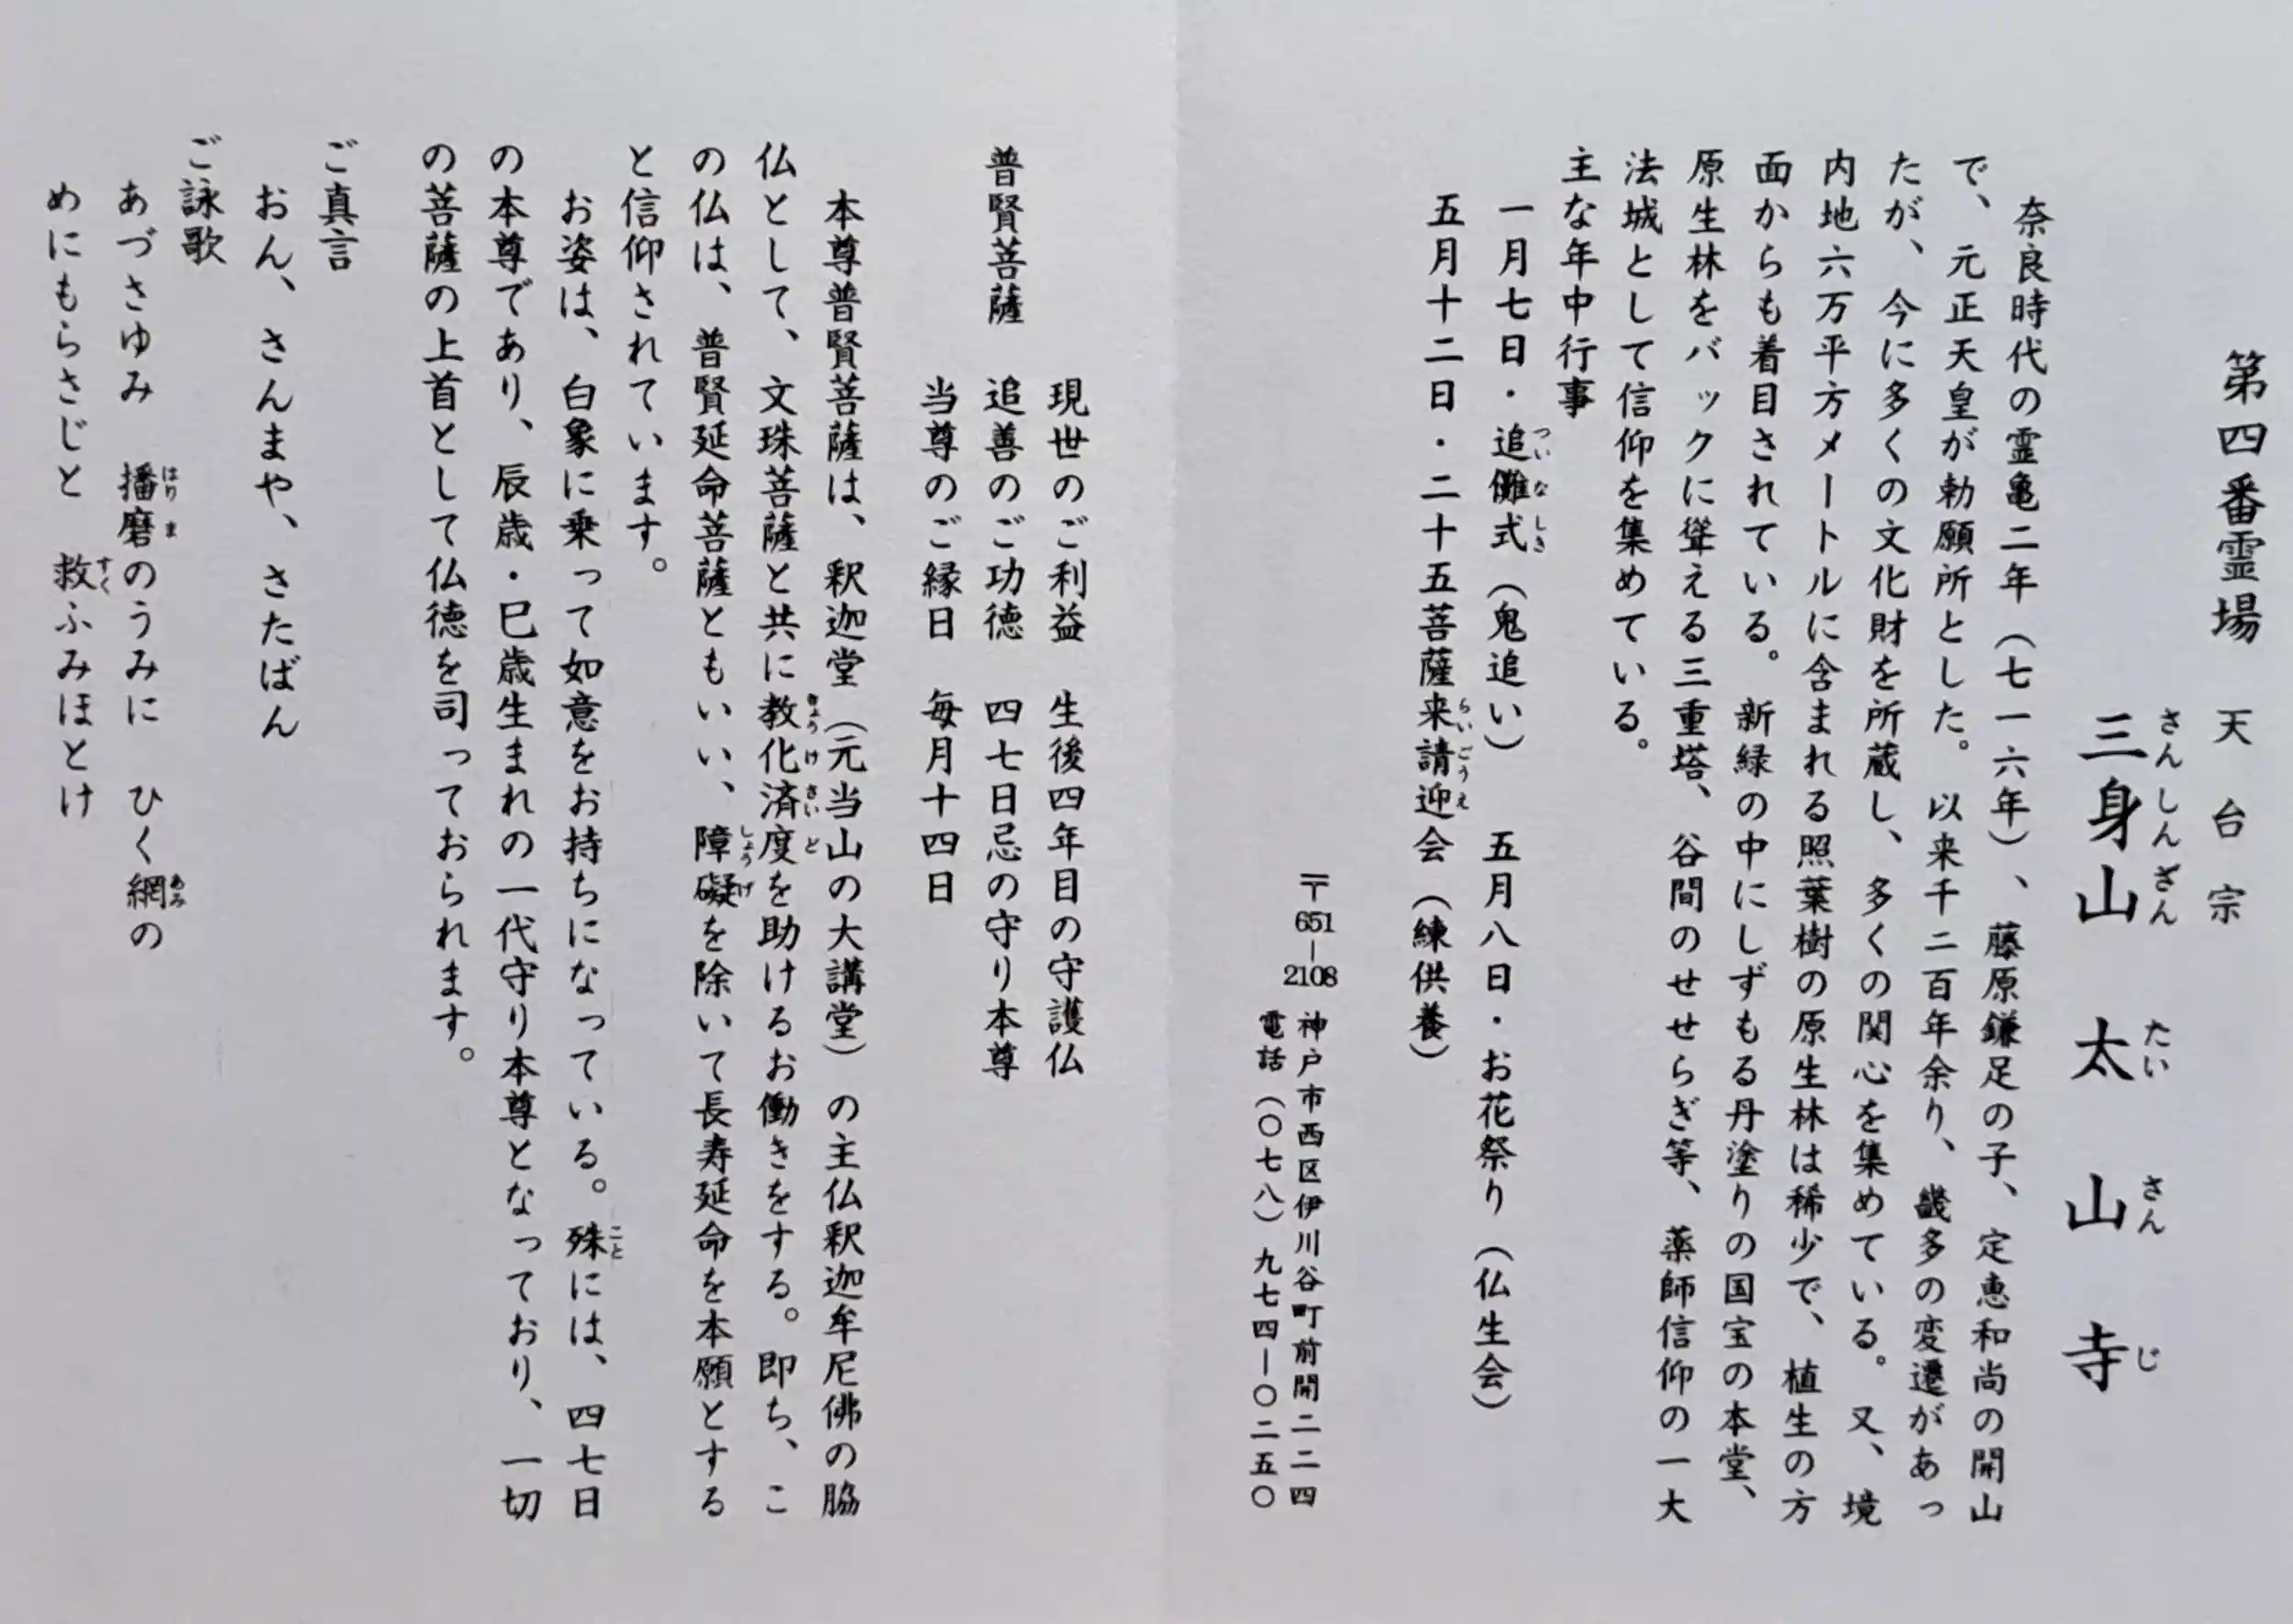 第四番霊場　天台宗
三身山　太山寺
さんしんざん　たいさんじ
奈良時代の霊亀二年（七一六年）、藤原鎌足の子、定恵和尚の開山
で、元正天皇が勅願所とした。以来千二百年余り、幾多の変遷があっ
たが、今に多くの文化財を所蔵し、多くの関心を集めている。又、境
内地六万平方メートルに含まれる照葉樹の原生林は稀少で、植生の方
面からも着目されている。新緑の中にしずもる丹塗りの国宝の本堂、
原生林をバックに聳える三重塔、谷間のせせらぎ等、薬師信仰の一大
法城として信仰を集めている。
主な年中行事
一月七日・追儺式（鬼追い）　五月八日・お花祭り（仏生会）
ついなしき
五月十二日・二十五菩薩来請迎会（練供養）
らいごうえ
〒651-2108　神戸市西区伊川谷町前開二二四
電話（〇七八）九七四ー〇二五〇
現世のご利益　生後四年目の守護仏
普賢菩薩　追善のご功徳　四七日忌の守り本尊
当尊のご縁日　毎月十四日
本尊普賢菩薩は、釈迦堂（元当山の大講堂）の主仏釈迦牟尼佛の脇
仏として、文珠菩薩と共に教化済度を助けるお働きをする。即ち、こ
きょうけさいど
の仏は、普賢延命菩薩ともいい、障礙を除いて長寿延命を本願とする
しょうげ
と信仰されています。
お姿は、白象に乗って如意をお持ちになっている。殊には、四七日
こと
の本尊であり、辰歳・巳歳生まれの一代守り本尊となっており、一切
の菩薩の上首として仏徳を司っておられます。
ご真言
おん、さんまや、さたばん
ご詠歌
あづさゆみ　播磨のうみに　ひく網の
はりま　あみ
めにもらさじと　救ふみほとけ
すく